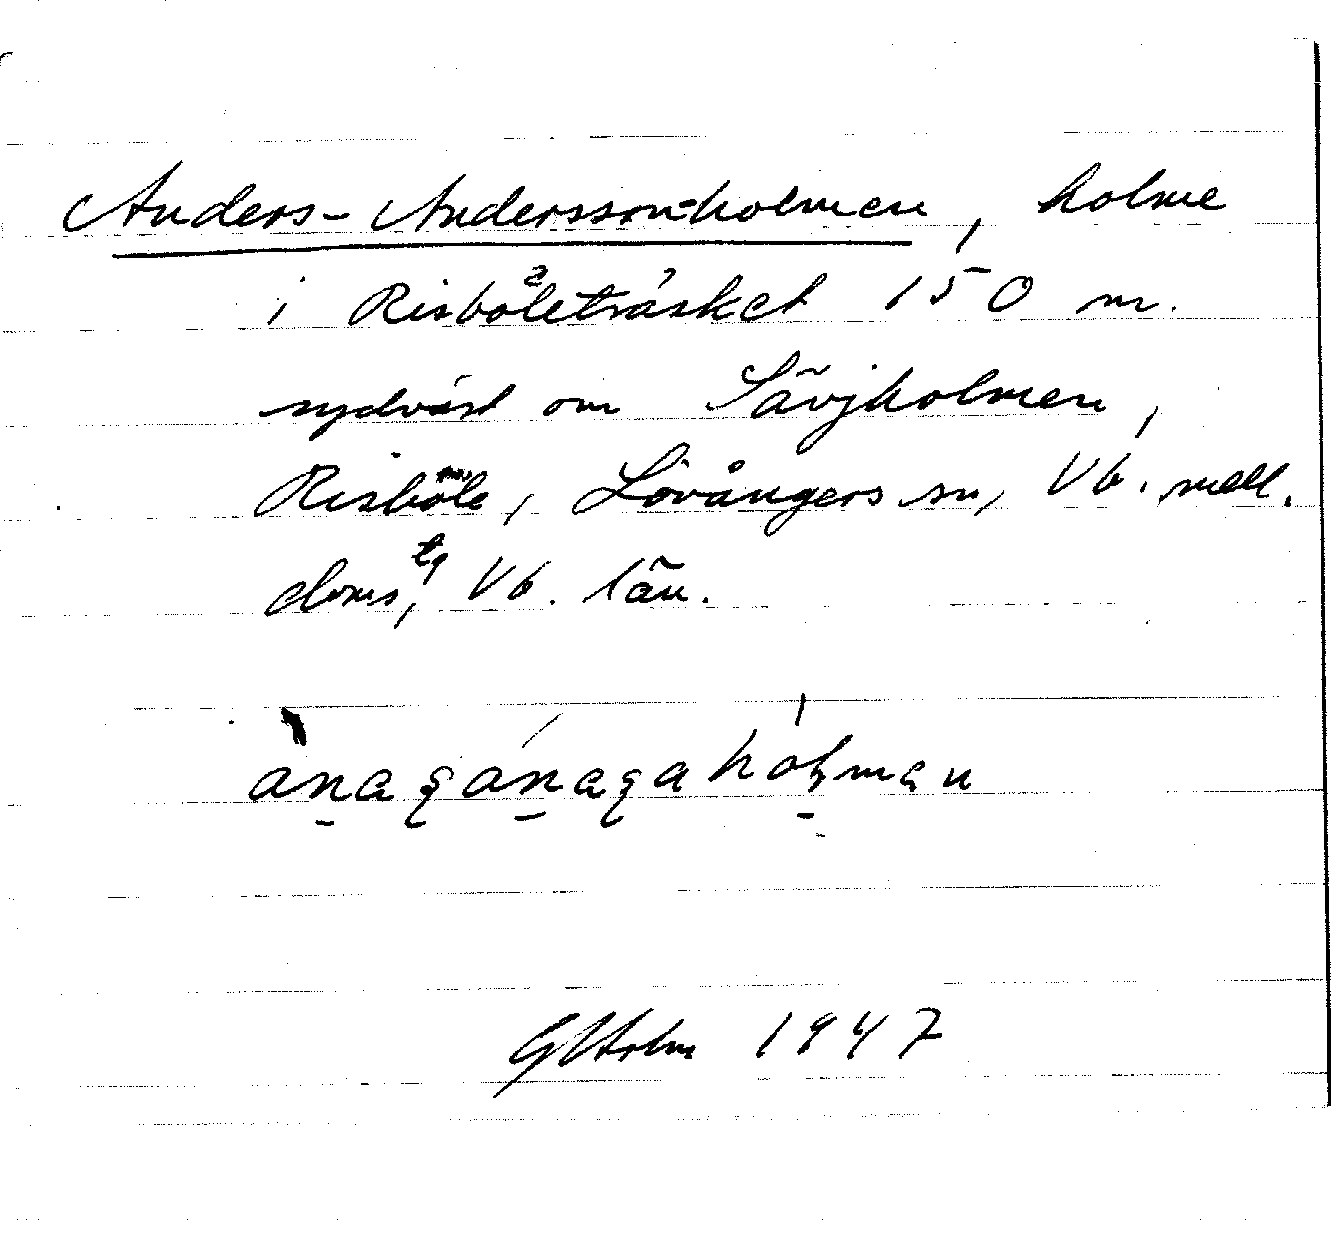 Anders-Anderssonholmen, holme
i Risböleträsket 150 m.
sydväst om Sävjholmen,
Risböle, Lövångers sn, Vb. mell.
doms, tg Vb. län.
GHolm 1947